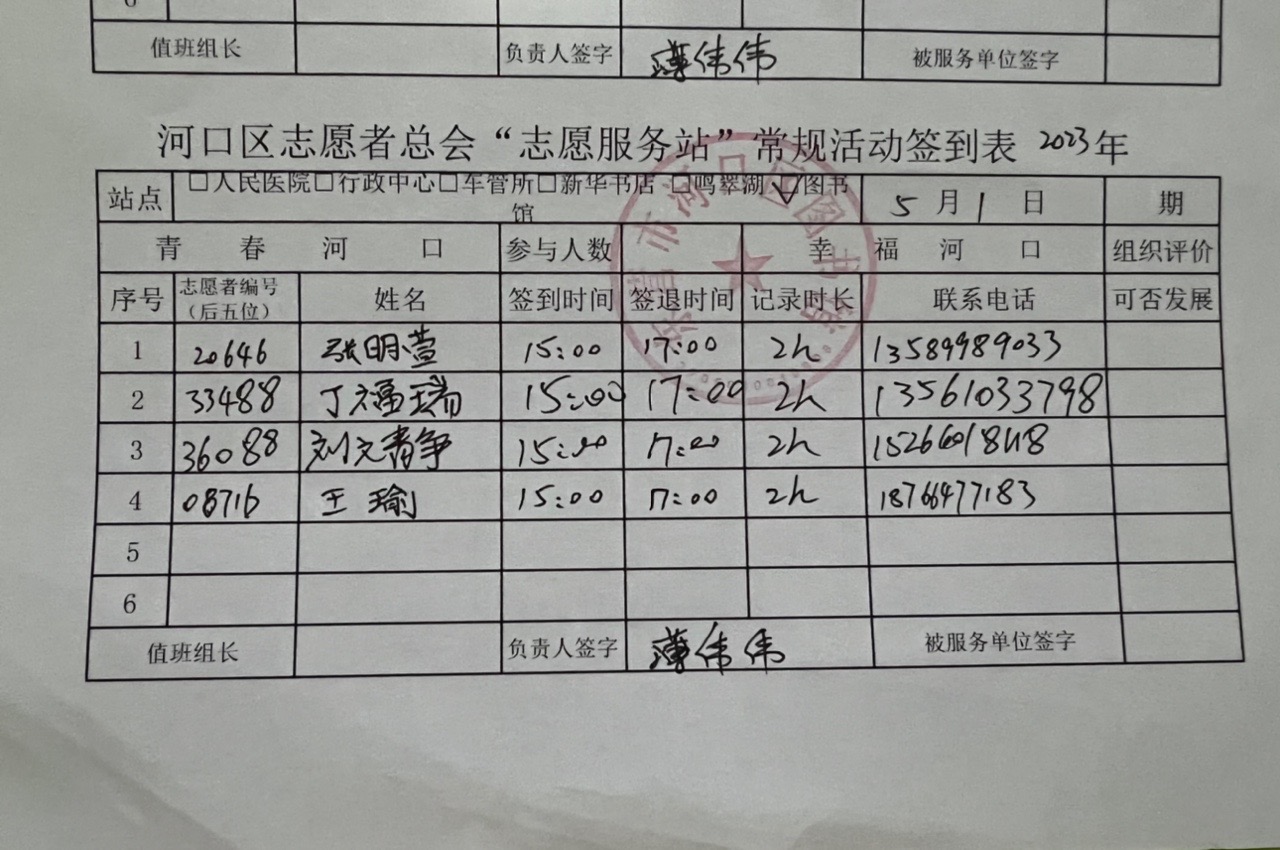 6
值班组长 负责人签字 薄伟伟 被服务单位签字
河口区志愿者总会“志愿服务站”常规活动签到表 2023年
站点 □人民医院□行政中心□车管所□新华书店 □鸣翠湖☑图书馆 5 月 1 日 期
青春河口 参与人数 幸福河口 组织评价
序号 志愿者编号（后五位） 姓名 签到时间 签退时间 记录时长 联系电话 可否发展
1 20646 张明萱 15:00 17:00 2h 13589989033
2 33488 丁福瑞 15:00 17:00 2h 13561033798
3 36088 刘文青争 15:00 17:00 2h
4 08716 王瑜 15:00 17:00 2h 18766477183
5
6
值班组长 负责人签字 薄伟伟 被服务单位签字